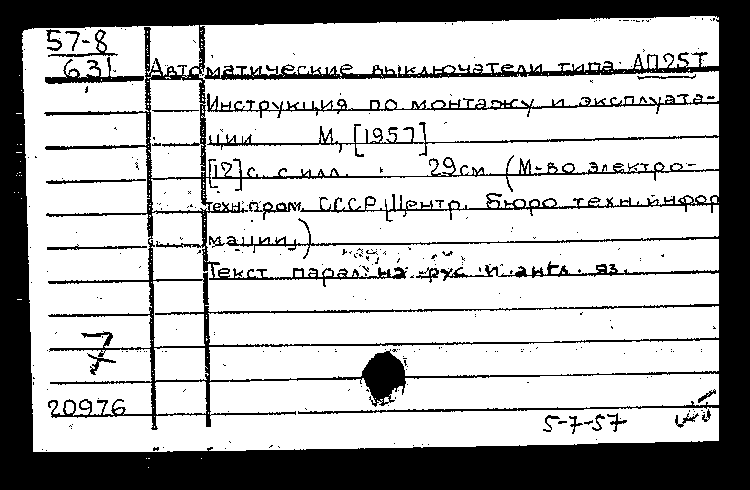 57-8
631
Автоматические выключатели типа АП25Т
Инструкция по монтажу и эксплуата-
ции М, [1957]
[12]с. с илл. 29см (М-во электро-
техн.пром. СССР. Центр. бюро техн.инфор
мации.)
Текст парал. на рус и англ. яз.
7
20976
5-7-57